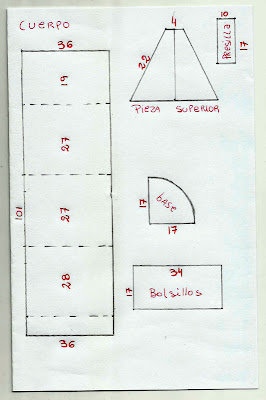 CUERPO
36
19
27
27
28
101
36
4
22
PIEZA SUPERIOR
10
PRESILLA
17
17
base
17
34
17
Bolsillos